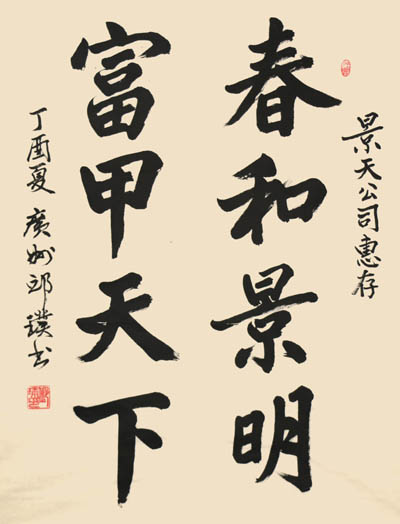 景天公司惠存
春和景明
富甲天下
丁酉夏 廣州邱鏷書